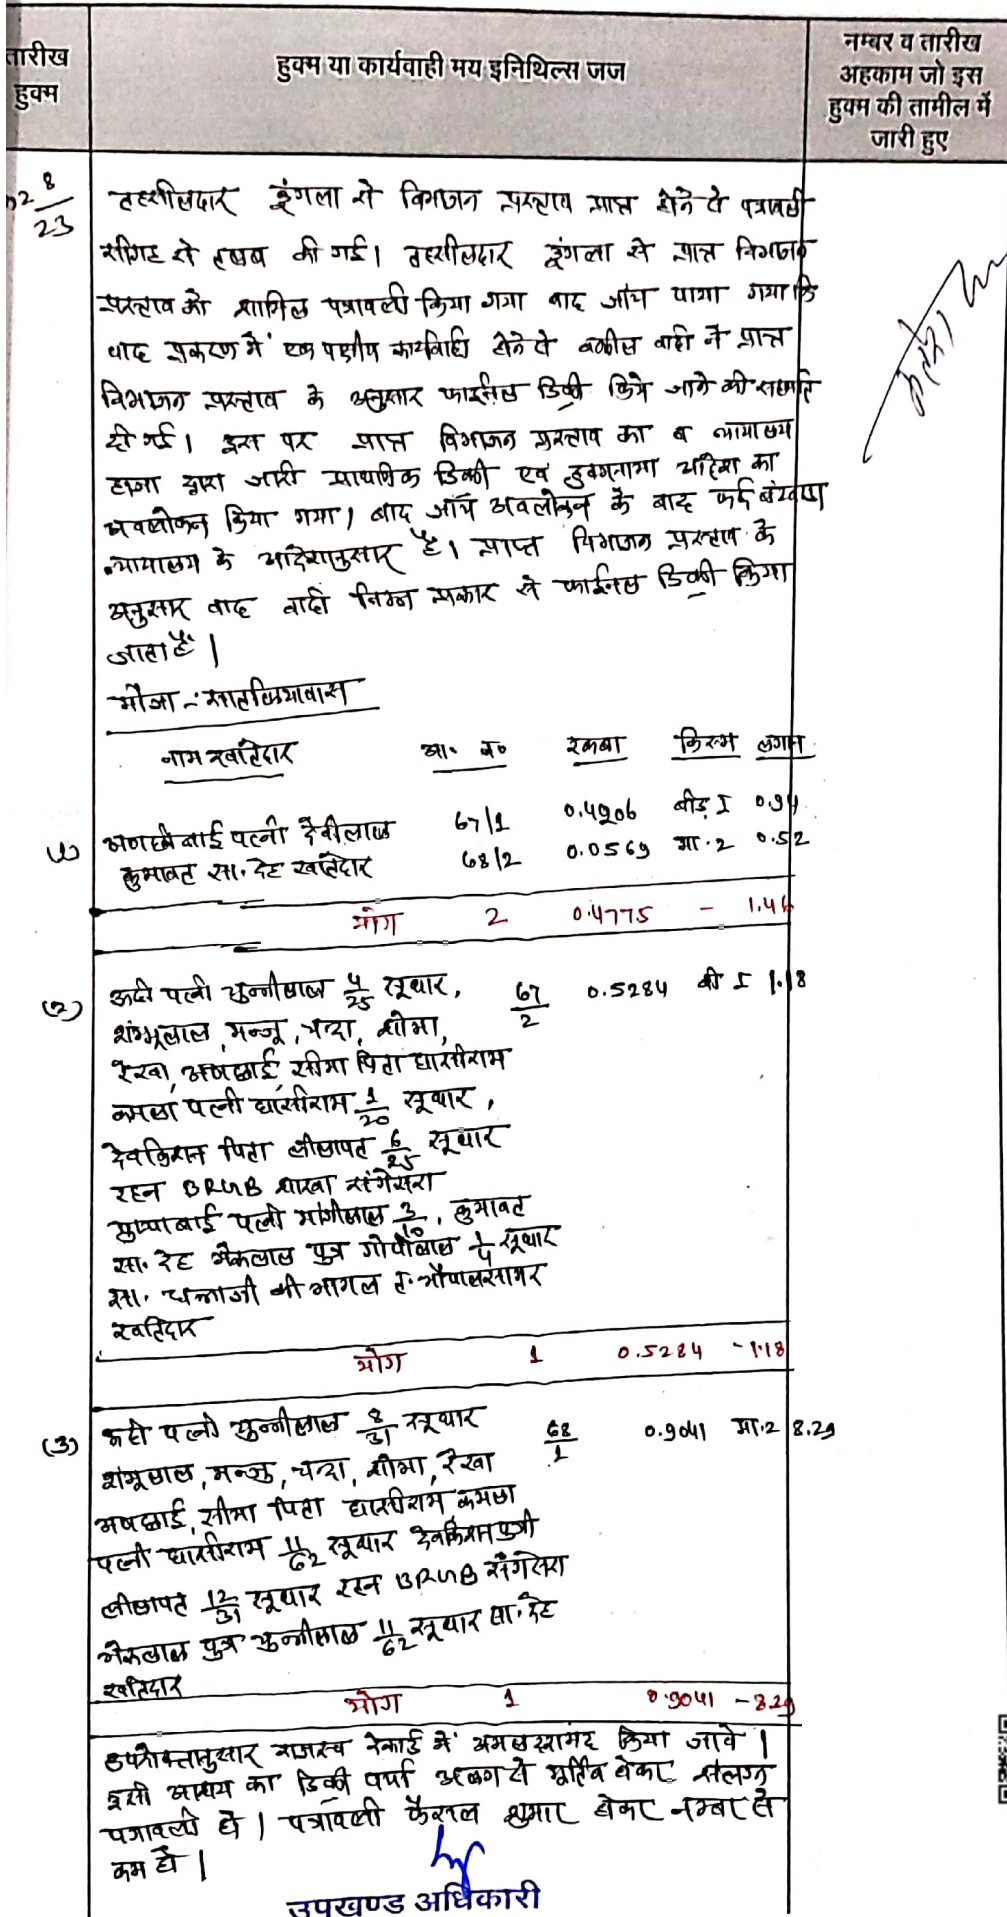 तारीख
हुक्म
हुक्म या कार्यवाही मय इनिथिल्स जज
नम्बर व तारीख
अहकाम जो इस
हुक्म की तामील में
जारी हुए
8
23
तहसीलदार डूंगला से विभाजन प्रस्ताव प्राप्त होने से पत्रावली
सीगह से तलब की गई। तहसीलदार डूंगला से प्राप्त विभाजन
प्रस्ताव को शामिल पत्रावली किया गया बाद जांच पाया गया कि
वाद प्रकरण में एक पक्षीय कार्यवाही होने से वकील वादी ने प्राप्त
विभाजन प्रस्ताव के अनुसार फाईनल डिक्री किये जाने की सहमति
दी गई। इस पर प्राप्त विभाजन प्रस्ताव का व न्यायालय
हाजा द्वारा जारी प्राथमिक डिक्री एवं हुक्मनामा आदेश का
अवलोकन किया गया। बाद जाँच अवलोकन के बाद
न्यायालय के आदेशानुसार है। प्राप्त विभाजन प्रस्ताव के
अनुसार वाद वादी निम्न प्रकार से फाईनल डिक्री किया
जाता है।
मौजा :-
नाम खातेदार आ. न. रकबा किस्म लगान
(1) बाई पत्नी देवीलाल 67/1 0.4206 बीड़ I 0.94
कुमावत सा. देह खातेदार 68/2 0.0569 मा.2 0.52
योग 2 0.4775 - 1.46
(2) पत्नी चुन्नीलाल 4/25 सूथार, 67/2 0.5284 बी I 1.18
शंभूलाल, मन्जू, चन्दा, शोभा,
रेखा, सीमा पिता घासीराम
कमला पत्नी घासीराम 1/20 सूथार,
देवकिशन पिता लीलापत 6/25 सूथार
रहन BRGB शाखा संगेसरा
पुष्पाबाई पत्नी मांगीलाल 3/10, कुमावत
सा. देह भैरूलाल पुत्र गोपीलाल 1/4 सूथार
सा. की भागल त. भोपालसागर
खातेदार
योग 1 0.5284 - 1.18
(3) पत्नी चुन्नीलाल 8/31 सूथार 68/1 0.9041 मा.2 8.29
शंभूलाल, मन्जु, चन्दा, शोभा, रेखा
सीमा पिता घासीराम, कमला
पत्नी घासीराम 11/62 सूथार देवकिशन
लीलापत 12/31 सूथार रहन BRGB संगेसरा
भैरूलाल पुत्र चुन्नीलाल 11/62 सूथार सा. देह
खातेदार
योग 1 0.9041 - 8.29
उपरोक्तानुसार राजस्व रेकार्ड में अमल दरामद किया जावे।
इसी आशय का डिक्री पर्चा अलग से मुर्तिब होकर संलग्न
पत्रावली हो। पत्रावली फैसल शुमार होकर नम्बर से
कम हो।
उपखण्ड अधिकारी